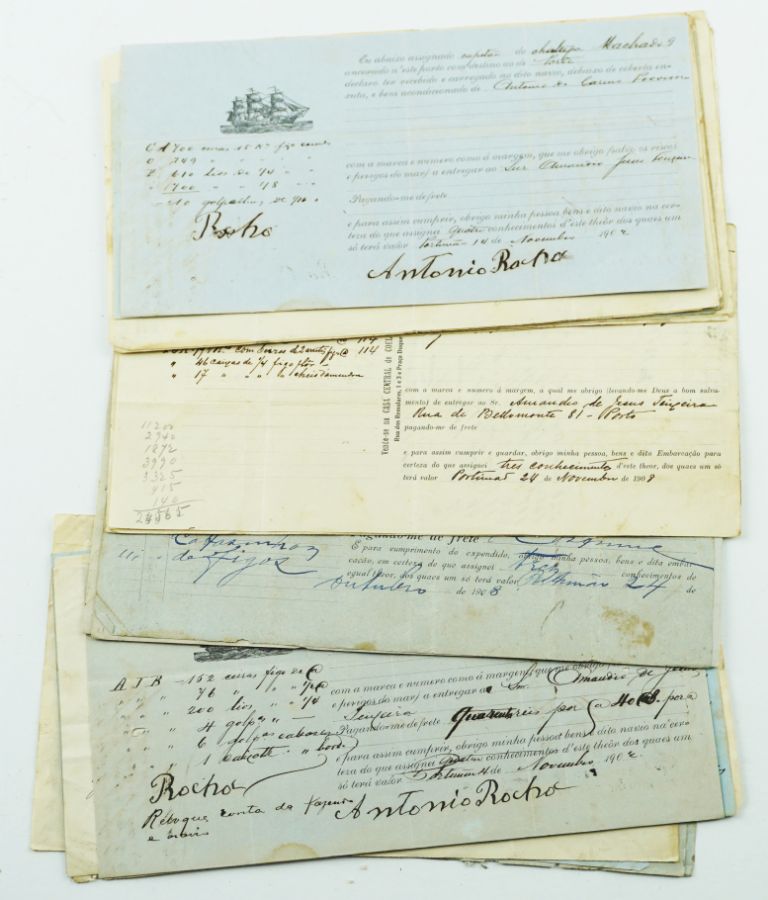 Eu abaixo assignado capitão do chalupa Machado 9
ancorado n'este porto com destino ao de Porto
declaro ter recebido e carregado no dito navio, debaixo de coberta en-
xuta, e bem acondicionado de Antonio do Carmo
700 ceiras
749 " " " "
610 " de 1/4 " "
1700 " " 1/8 " "
com a marca e numero como á margem, que me obrigo (salvo os riscos
e perigos do mar) a entregar ao Snr. Amandio Jesus
Pagando-me de frete
e para assim cumprir, obrigo minha pessoa bens e dito navio na cer-
teza do que assignei quatro conhecimentos d'este theôr dos quaes um
só terá valor Portimão 14 de Novembro 190
Rocha
Antonio Rocha
114
" 46 caixas de 1/4 figo flôr
" 17 " " " "
Vende-se na CASA CENTRAL de
Rua dos Remolares, 1 e 3 e Praça Duque
com a marca e numero á margem, a qual me obrigo (levando-me Deus a bom salva-
mento) de entregar ao Sr. Amandio de Jesus Teixeira
Rua de Bellomonte 81 - Porto
pagando-me de frete
e para assim cumprir e guardar, obrigo minha pessoa, bens e dita Embarcação para
certeza do que assignei tres conhecimentos d'este theor, dos quaes um só
terá valor Portimão 24 de Novembro de 1908
11200
2940
1872
3990
3325
915
140
24565
de figos
Pagando-me de frete
E para cumprimento do expendido, obrigo minha pessoa, bens e dita embar-
cação, em certeza do que assignei tres conhecimentos de
egual theor, dos quaes um só terá valor Portimão 24 de
Outubro de 1908
A J R - 152 ceiras figo de @
" " " 76 " " " 1/2 @
" " " 200 " " 1/4
" 4 golp.as " -
" 6 golp.as
" 1 " "
com a marca e numero como á margem, que me obrigo
e perigos do mar) a entregar ao Snr. Amandio de Jesus
Teixeira
Pagando-me de frete Quarenta reis por @
e para assim cumprir, obrigo minha pessoa bens e dito navio na cer-
teza do que assignei quatro conhecimentos d'este theôr dos quaes um
só terá valor Portimão de Novembro 190
Rocha
Antonio Rocha
Reboque conta da
e navio